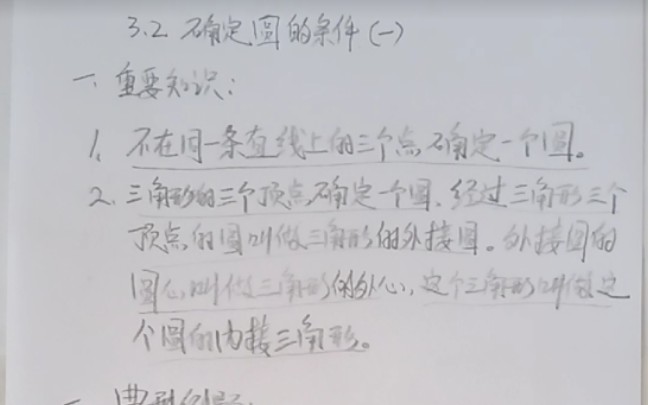 3.2 确定圆的条件(一)
一、重要知识:
1、不在同一条直线上的三个点确定一个圆。
2、三角形的三个顶点确定一个圆、经过三角形三个
顶点的圆叫做三角形的外接圆。外接圆的
圆心叫做三角形的外心,这个三角形叫做这
个圆的内接三角形。
典型例题: